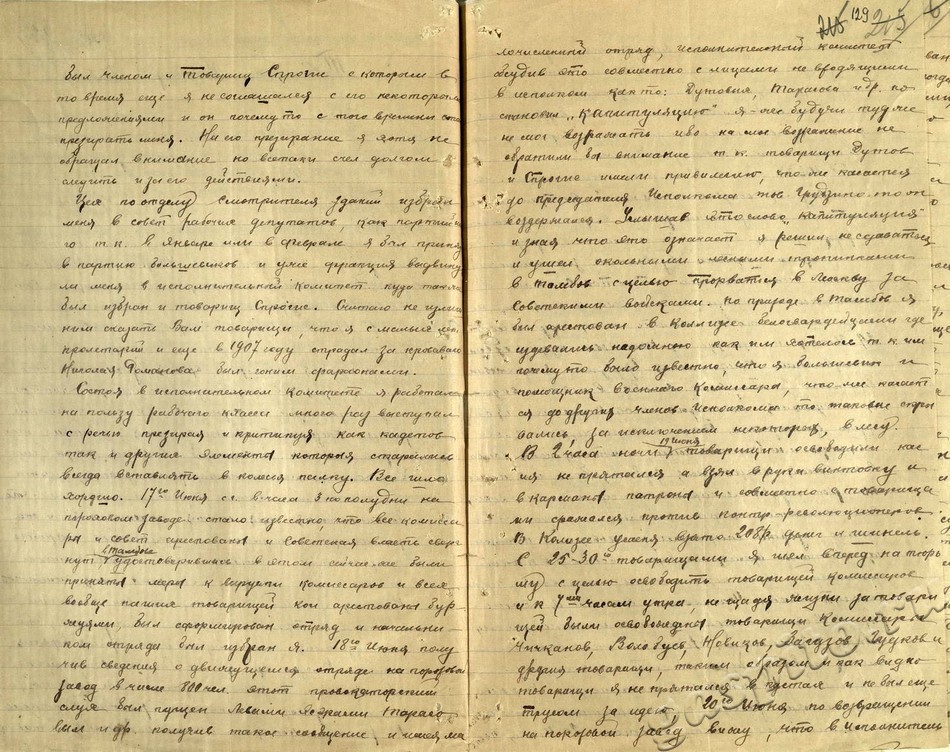 был членом и товарищ Спрогис с которым в
то время еще я не соглашался с его некоторыми
предложениями и он почему то с того времени стал
презирать меня. На его презрение я хотя не
обращал внимание но всетаки счел долгом
следить и за его действиями.
Цех по отделу смотрителя зданий избрал
меня в совет рабочих депутатов, как партийно
го т.к. в Январе или в феврале я был принят
в партию большевиков и уже фракция выдвину
ла меня в исполнительный комитет куда также
был избран и товарищ Спрогис. Считаю не излиш
ним сказать Вам товарищи, что я с малых лет
пролетарий и еще в 1907 году страдал за кровавого
Николая Романова был гоним фараонами.
Состоя в исполнительном комитете я работал
на пользу рабочего класса много раз выступал
с речью презирая и критикуя как кадетов
так и другие элементы которые старались
всегда вставлять в колеса палку. Все шло
хорошо. 17го Июня с.г. в часа 3 пополудни на
пороховом заводе стало известно что все комисса
ры и совет арестованы и Советская власть сверг
нута
в Тамбове
удостоверившись в этом сейчас же были
приняты меры к выручке комиссаров и всех
вообще наших товарищей кои арестованы бур
жуями, был сформирован отряд и начальни
ком отряда был избран я. 18го Июня полу
чив сведения о движущемся отряде на пороховой
завод в числе 800 чел. этот провокаторский
слух был пущен Левыми Эсерами Тарасо
вым и др. получив такое сообщение, и имея ма
129
лочисленный отряд, исполнительный комитет
обсудив это совместно с лицами не входящими
в исполком как то: Дутовия, Тарасова и др. по
становил "Капитуляцию" я что будучи тут же
не мог возражать ибо на мое возражение не
обратили бы внимание т.к. товарищи Дутов
и Спрогис имели привилегию, что же касается
до председателя Исполкома тов Грудзино то он
воздержался. Услышав это слово капитуляция
и зная что это означает я решил не сдаваться
и ушел окольными лесными тропинками
в Тамбов с целью прорваться в Москву за
Советскими войсками. По приходе в Тамбов я
был арестован в Колледже белогвардейцами где
издевались надомною как им хотелось т.к. им
почему то было известно, что я большевик и
помощник Военного Комиссара, что же касает
ся до других членов Исполкома то таковые скры
вались, за исключением некоторых, в лесу.
В 2 часа ночи
19 Июня
товарищи освободили нас
я не прятался а взял в руки винтовку и
в карманы патроны и совместно с товарища
ми сражался против контр-революционеров.
В Колледже у меня взято 208 р. денег и шинель.
С 25-30ю товарищами я шел вперед на тюрь
му с целью освободить товарищей комиссаров
и к 7ми часам утра, не щадя жизни за товари
щей были освобождены товарищи Комиссары
Чичканов, Волобуев, Новиков, Гудков и
другие товарищи, таким образом и как видно
товарищи я не прятался в кустах и не был еще
трусом за идею, 20го Июня по возвращении
на пороховой завод вижу, что в исполнитель